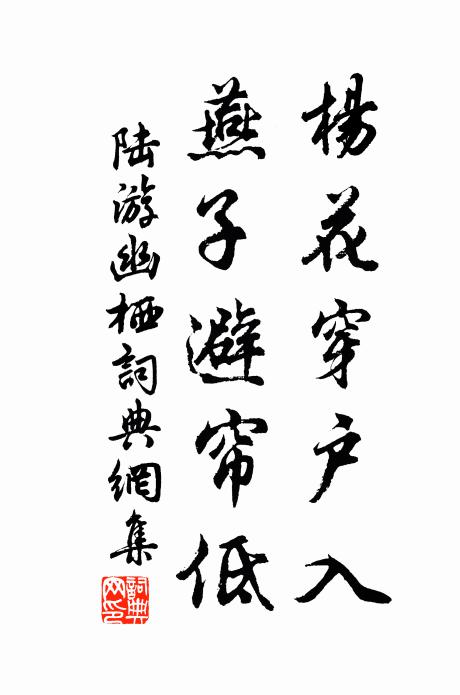 楊花穿戶入
燕子避帘低
陸游幽栖詞典網集
詞典網印